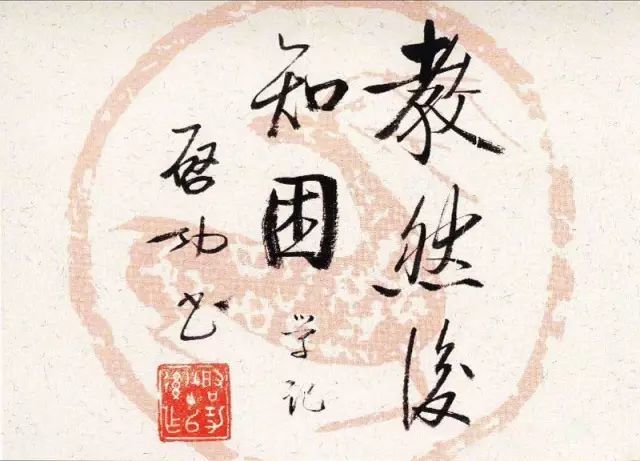 教然後
知困 学记
启功书